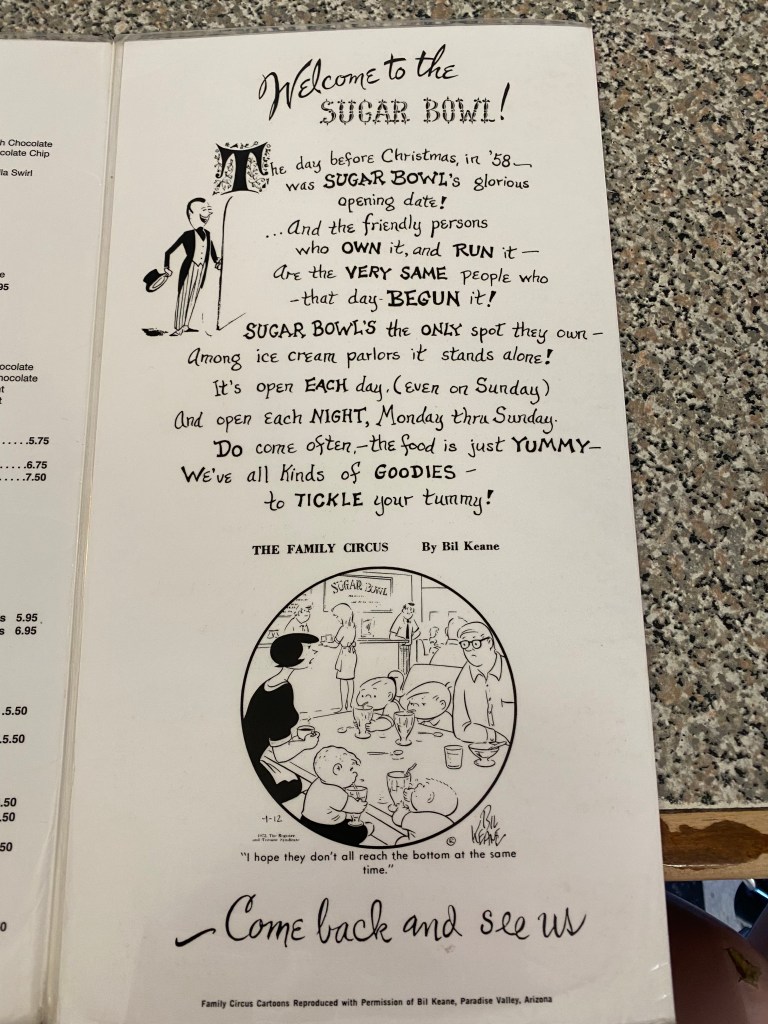 h Chocolate
colate Chip
lla Swirl
e
95
ocolate
hocolate
t
t
.....5.75
....6.75
.....7.50
s 5.95
s 6.95
.5.50
5.50
.50
.50
50
0
Welcome to the
SUGAR BOWL!
The day before Christmas, in '58—
was SUGAR BOWL's glorious
opening date!
...And the friendly persons
who OWN it, and RUN it —
Are the VERY SAME people who
-that day- BEGUN it!
SUGAR BOWL'S the ONLY spot they own —
Among ice cream parlors it stands alone!
It's open EACH day, (even on Sunday)
And open each NIGHT, Monday thru Sunday.
Do come often,—the food is just YUMMY—
We've all kinds of GOODIES —
to TICKLE your tummy!
THE FAMILY CIRCUS By Bil Keane
SUGAR BOWL
-1-12
1972, The Register
and Tribune Syndicate
© BIL
KEANE
"I hope they don't all reach the bottom at the same
time."
— Come back and see us
Family Circus Cartoons Reproduced with Permission of Bil Keane, Paradise Valley, Arizona